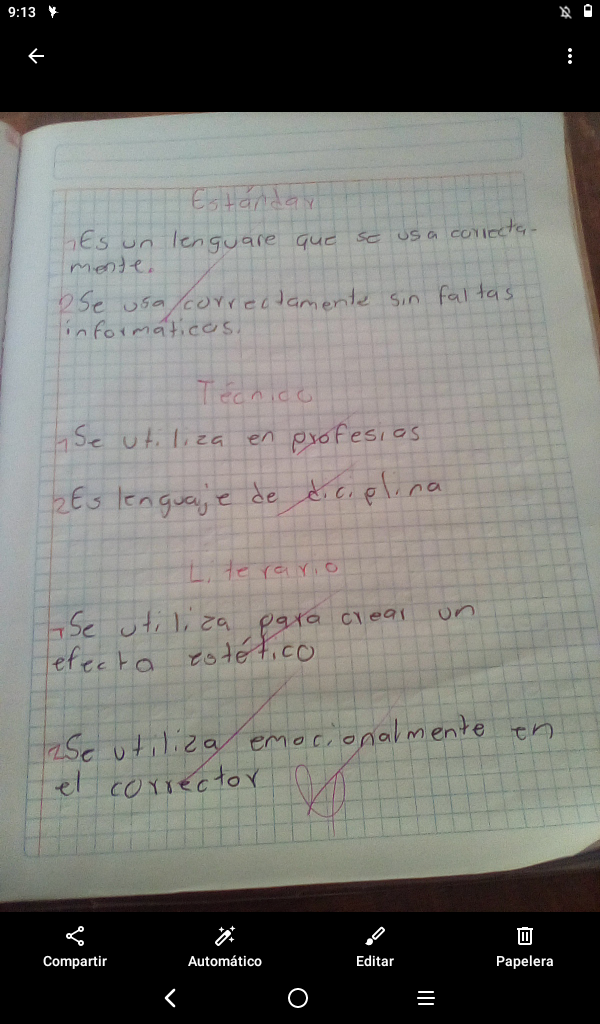 9:13
Estándar
1 Es un lenguaje que se usa correcta-
mente.
2 Se usa correctamente sin faltas
informáticas.
Técnico
1 Se utiliza en profesias
2 Es lenguaje de diciplina
Literario
1 Se utiliza para crear un
efecto estético
2 Se utiliza emocionalmente en
el corrector
Compartir
Automático
Editar
Papelera